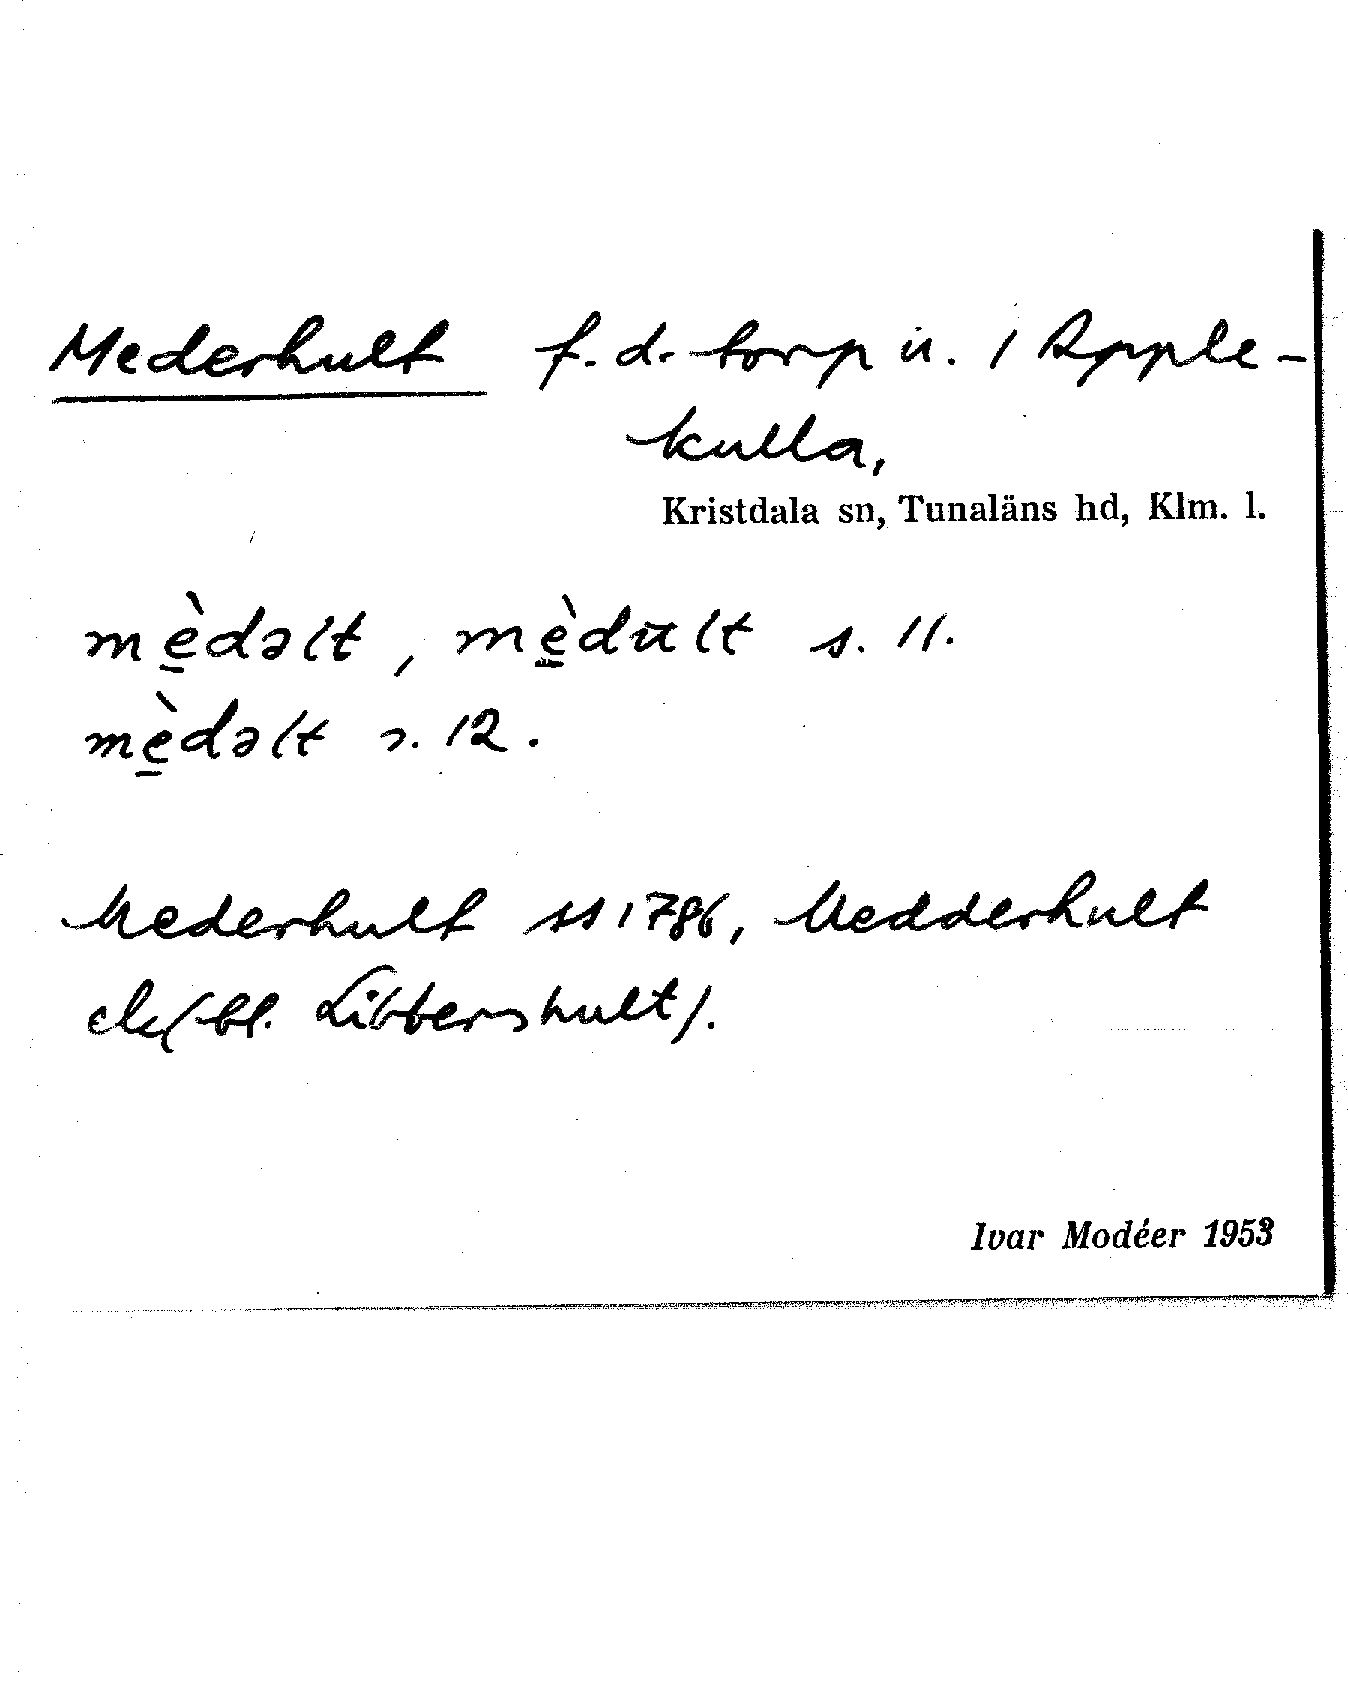 Mederhult f. d. torp u. 1 Apple-
kulla,
Kristdala sn, Tunaläns hd, Klm. l.
mèdəlt, mèdult s. 11.
mèdəlt s. 12.
Mederhult ss 1786, Medderhult
ek (bl. Libbershult).
Ivar Modéer 1953